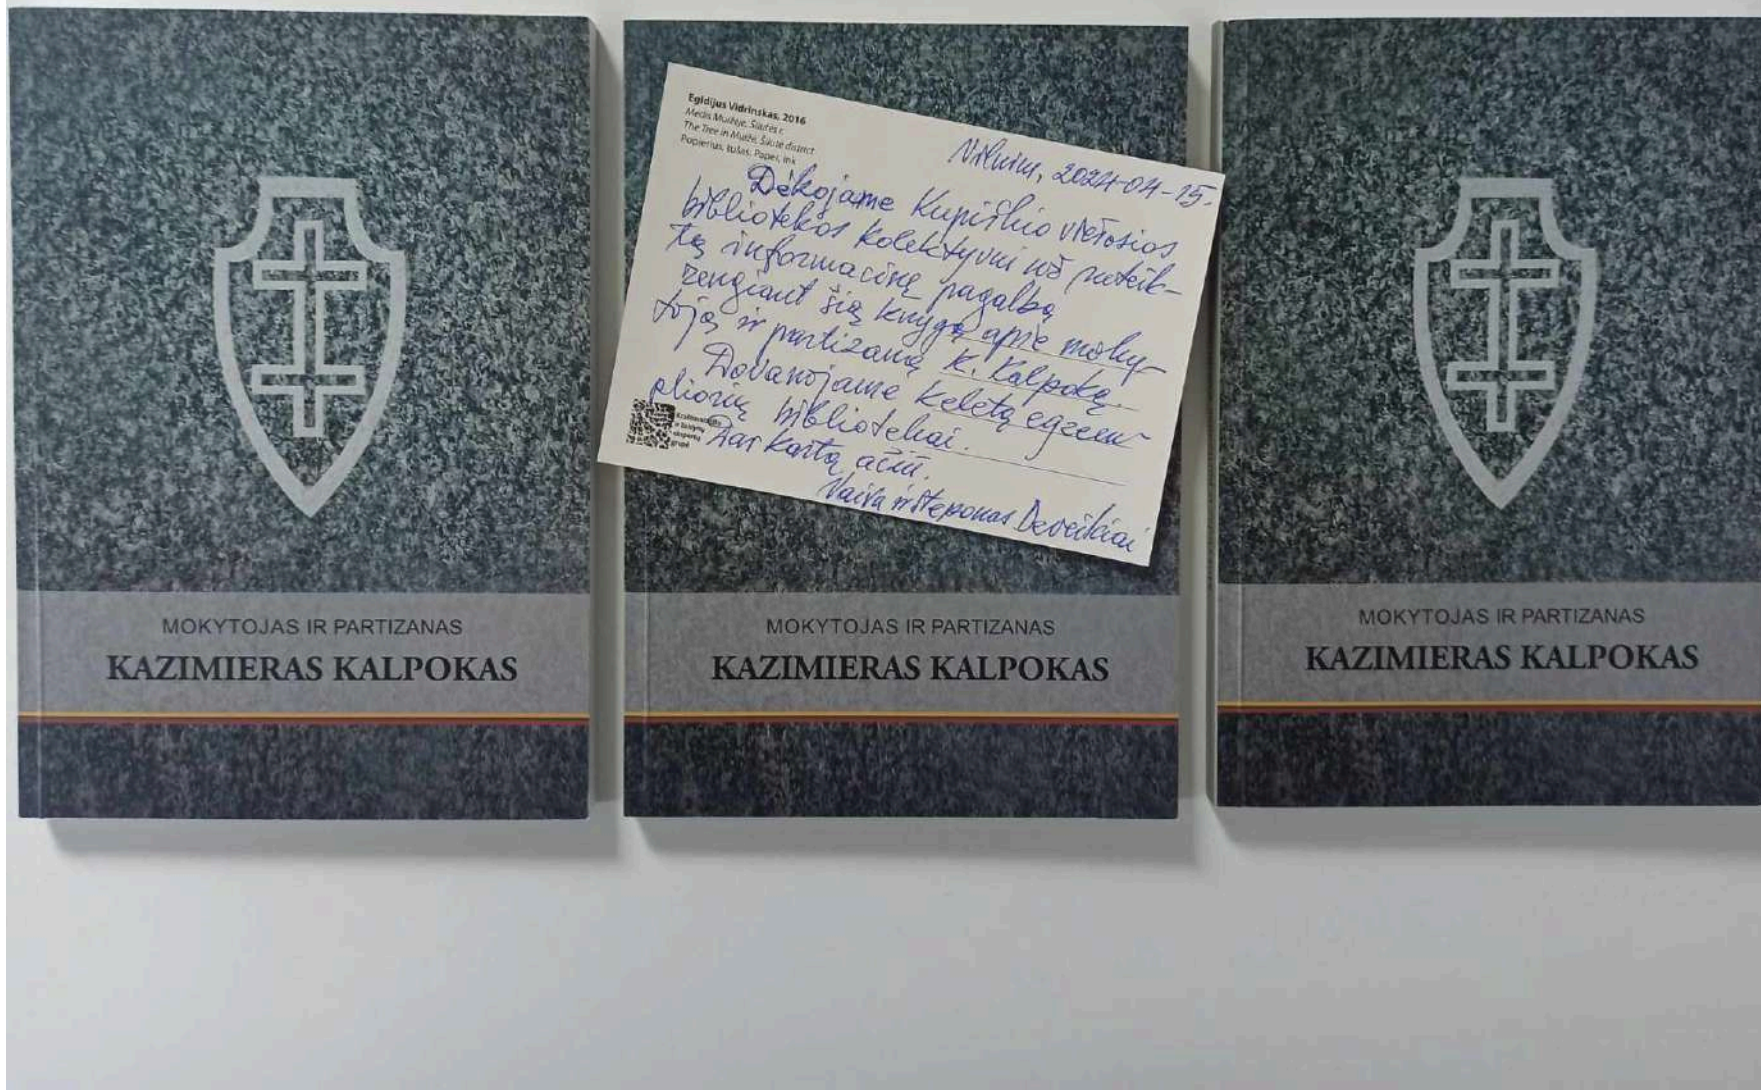 MOKYTOJAS IR PARTIZANAS
KAZIMIERAS KALPOKAS
Egidijus Vidrinskas, 2016
The Tree in
district
Popierius, tušas. Paper, ink
2024-04-15.
Dėkojame Kupiškio viešosios
bibliotekos kolektyvui už suteik-
tą informacinę pagalbą
rengiant šią knygą apie moky-
toją ir partizaną K. Kalpoką.
Dovanojame keletą egzem-
pliorių bibliotekai.
Dar kartą ačiū.
Vaiva ir Steponas Deveikiai
MOKYTOJAS IR PARTIZANAS
KAZIMIERAS KALPOKAS
MOKYTOJAS IR PARTIZANAS
KAZIMIERAS KALPOKAS